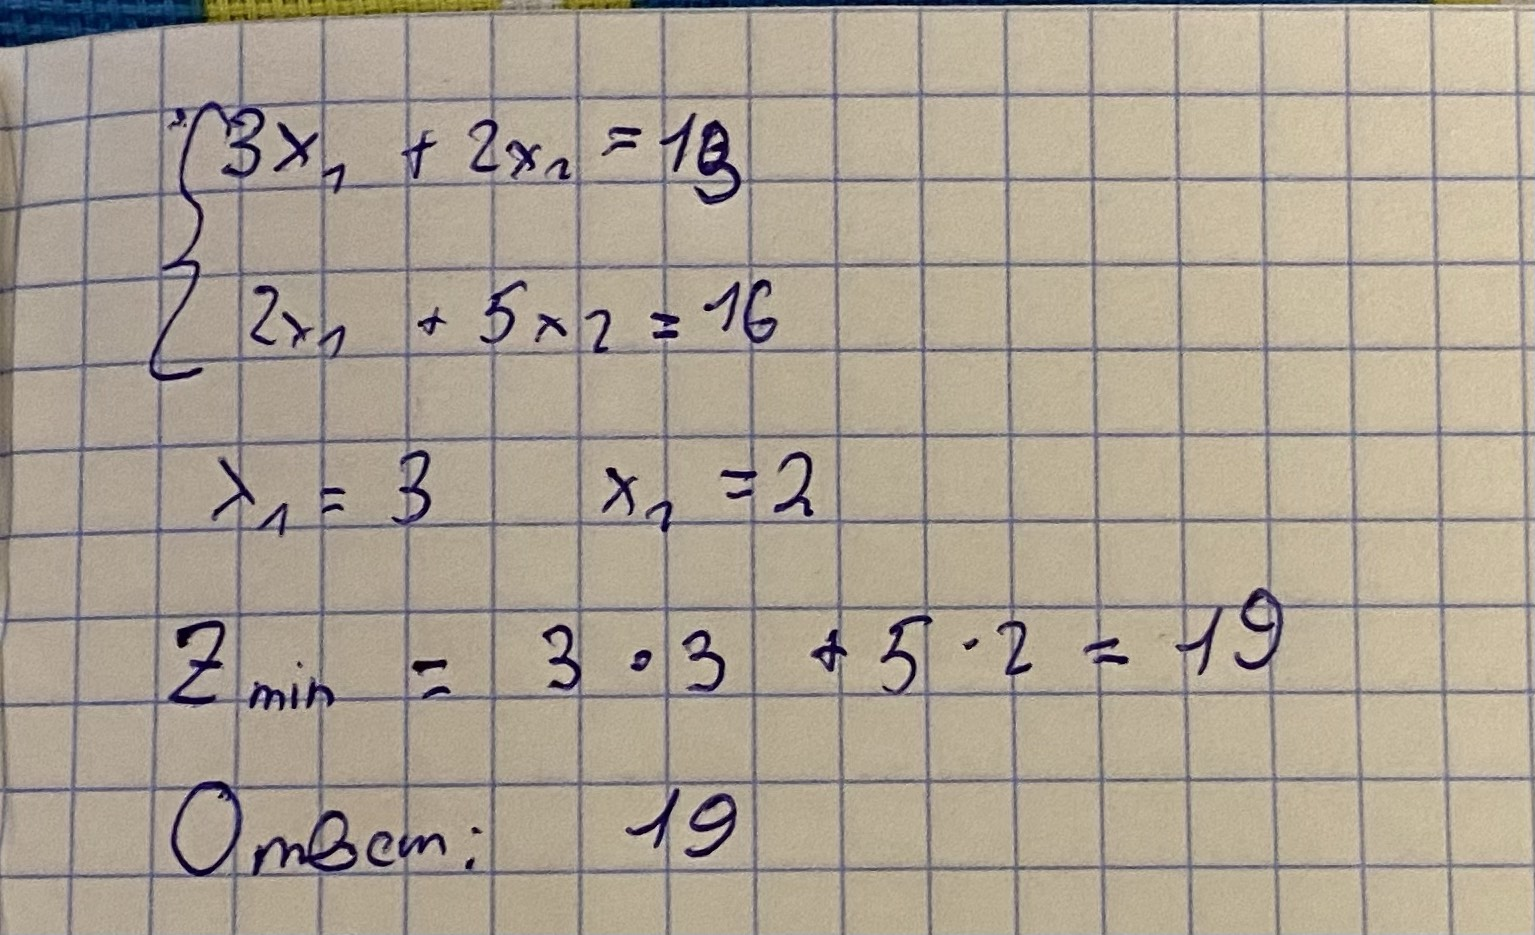 {3x₁ + 2x₂ = 13
2x₁ + 5x₂ = 16
x₁ = 3 x₂ = 2
Z min = 3 · 3 + 5 · 2 = 19
Ответ: 19